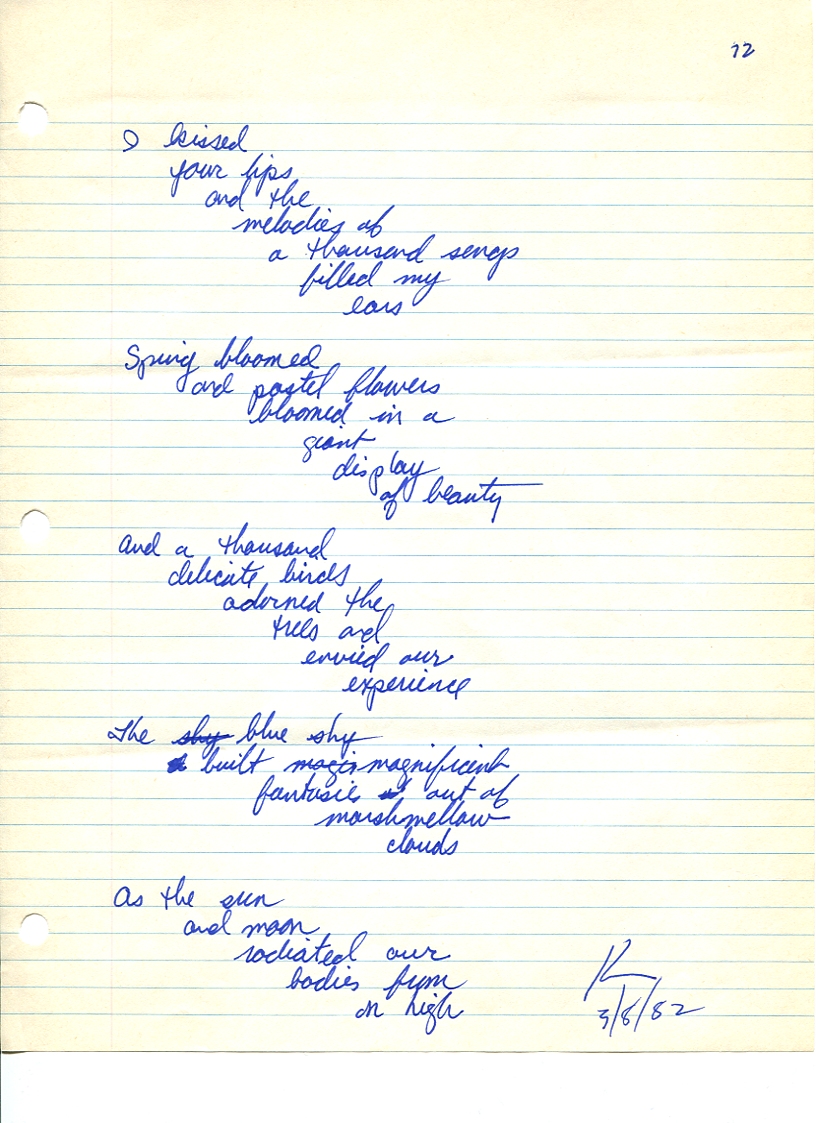 72
I kissed
your lips
and the
melodies of
a thousand songs
filled my
ears
Spring bloomed
and pastel flowers
bloomed in a
giant
display
of beauty
And a thousand
delicate birds
adorned the
trees and
envied our
experience
The sky blue sky
built magnificent
fantasies out of
marshmellow
clouds
As the sun
and moon
radiated our
bodies from
on high
K
3/8/82